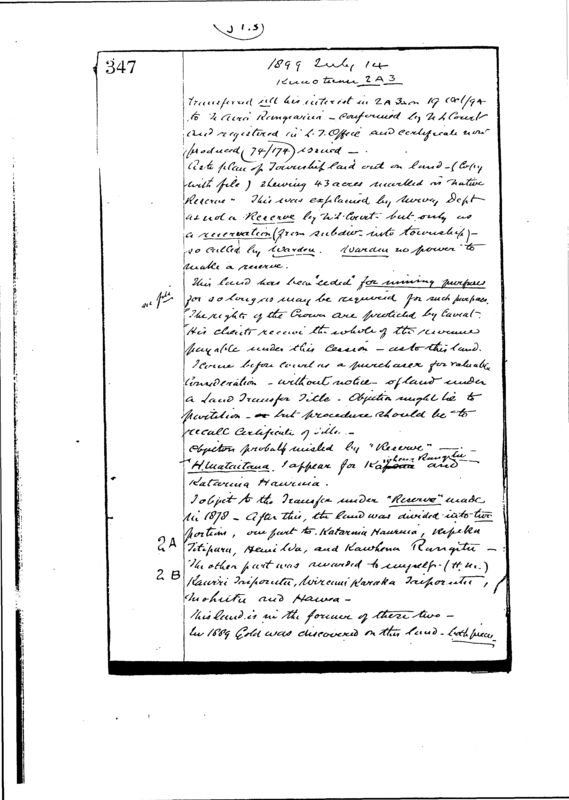 J 1.5
347
1899 July 14
Kuaotunu 2A3
transferred all his interest in 2A3 on 19 Oct/94
to confirmed by N L Court
and registered in L.T. Office and certificate now
produced (74/174) issued —
As to plan of Township laid out on land — (Copy
with file) shewing 43 acres marked as "Native
Reserve" This was explained by Survey Dept
as not a Reserve by N L Court but only as
a reservation (from subdivn into township) —
so called by Warden. Warden no power to
make a reserve.
This land has been "ceded" for mining purposes
see file
for so long as may be required for such purpose.
The rights of the Crown are protected by Caveat.
His clients receive the whole of the revenue
payable under this Cession — as to this land.
I come before court as a purchaser for valuable
consideration — without notice — of land under
a Land Transfer Title. Objection might lie to
partition — but procedure should be to
recall Certificate of title —
Objectors probably misled by "Reserve" —
H. Mataitaua. I appear for and
Katarina Hauruia.
I object to the Transfer under "Reserve" made
in 1878 — After this, the land was divided into two
portions, one part to Katarina Hauruia,
2A
Titipura, and Rangitu —
The other part was awarded to myself (H.M.)
2B
Karaka
and Hawea —
This land is in the former of these two —
In 1889 Gold was discovered on this land — both pieces